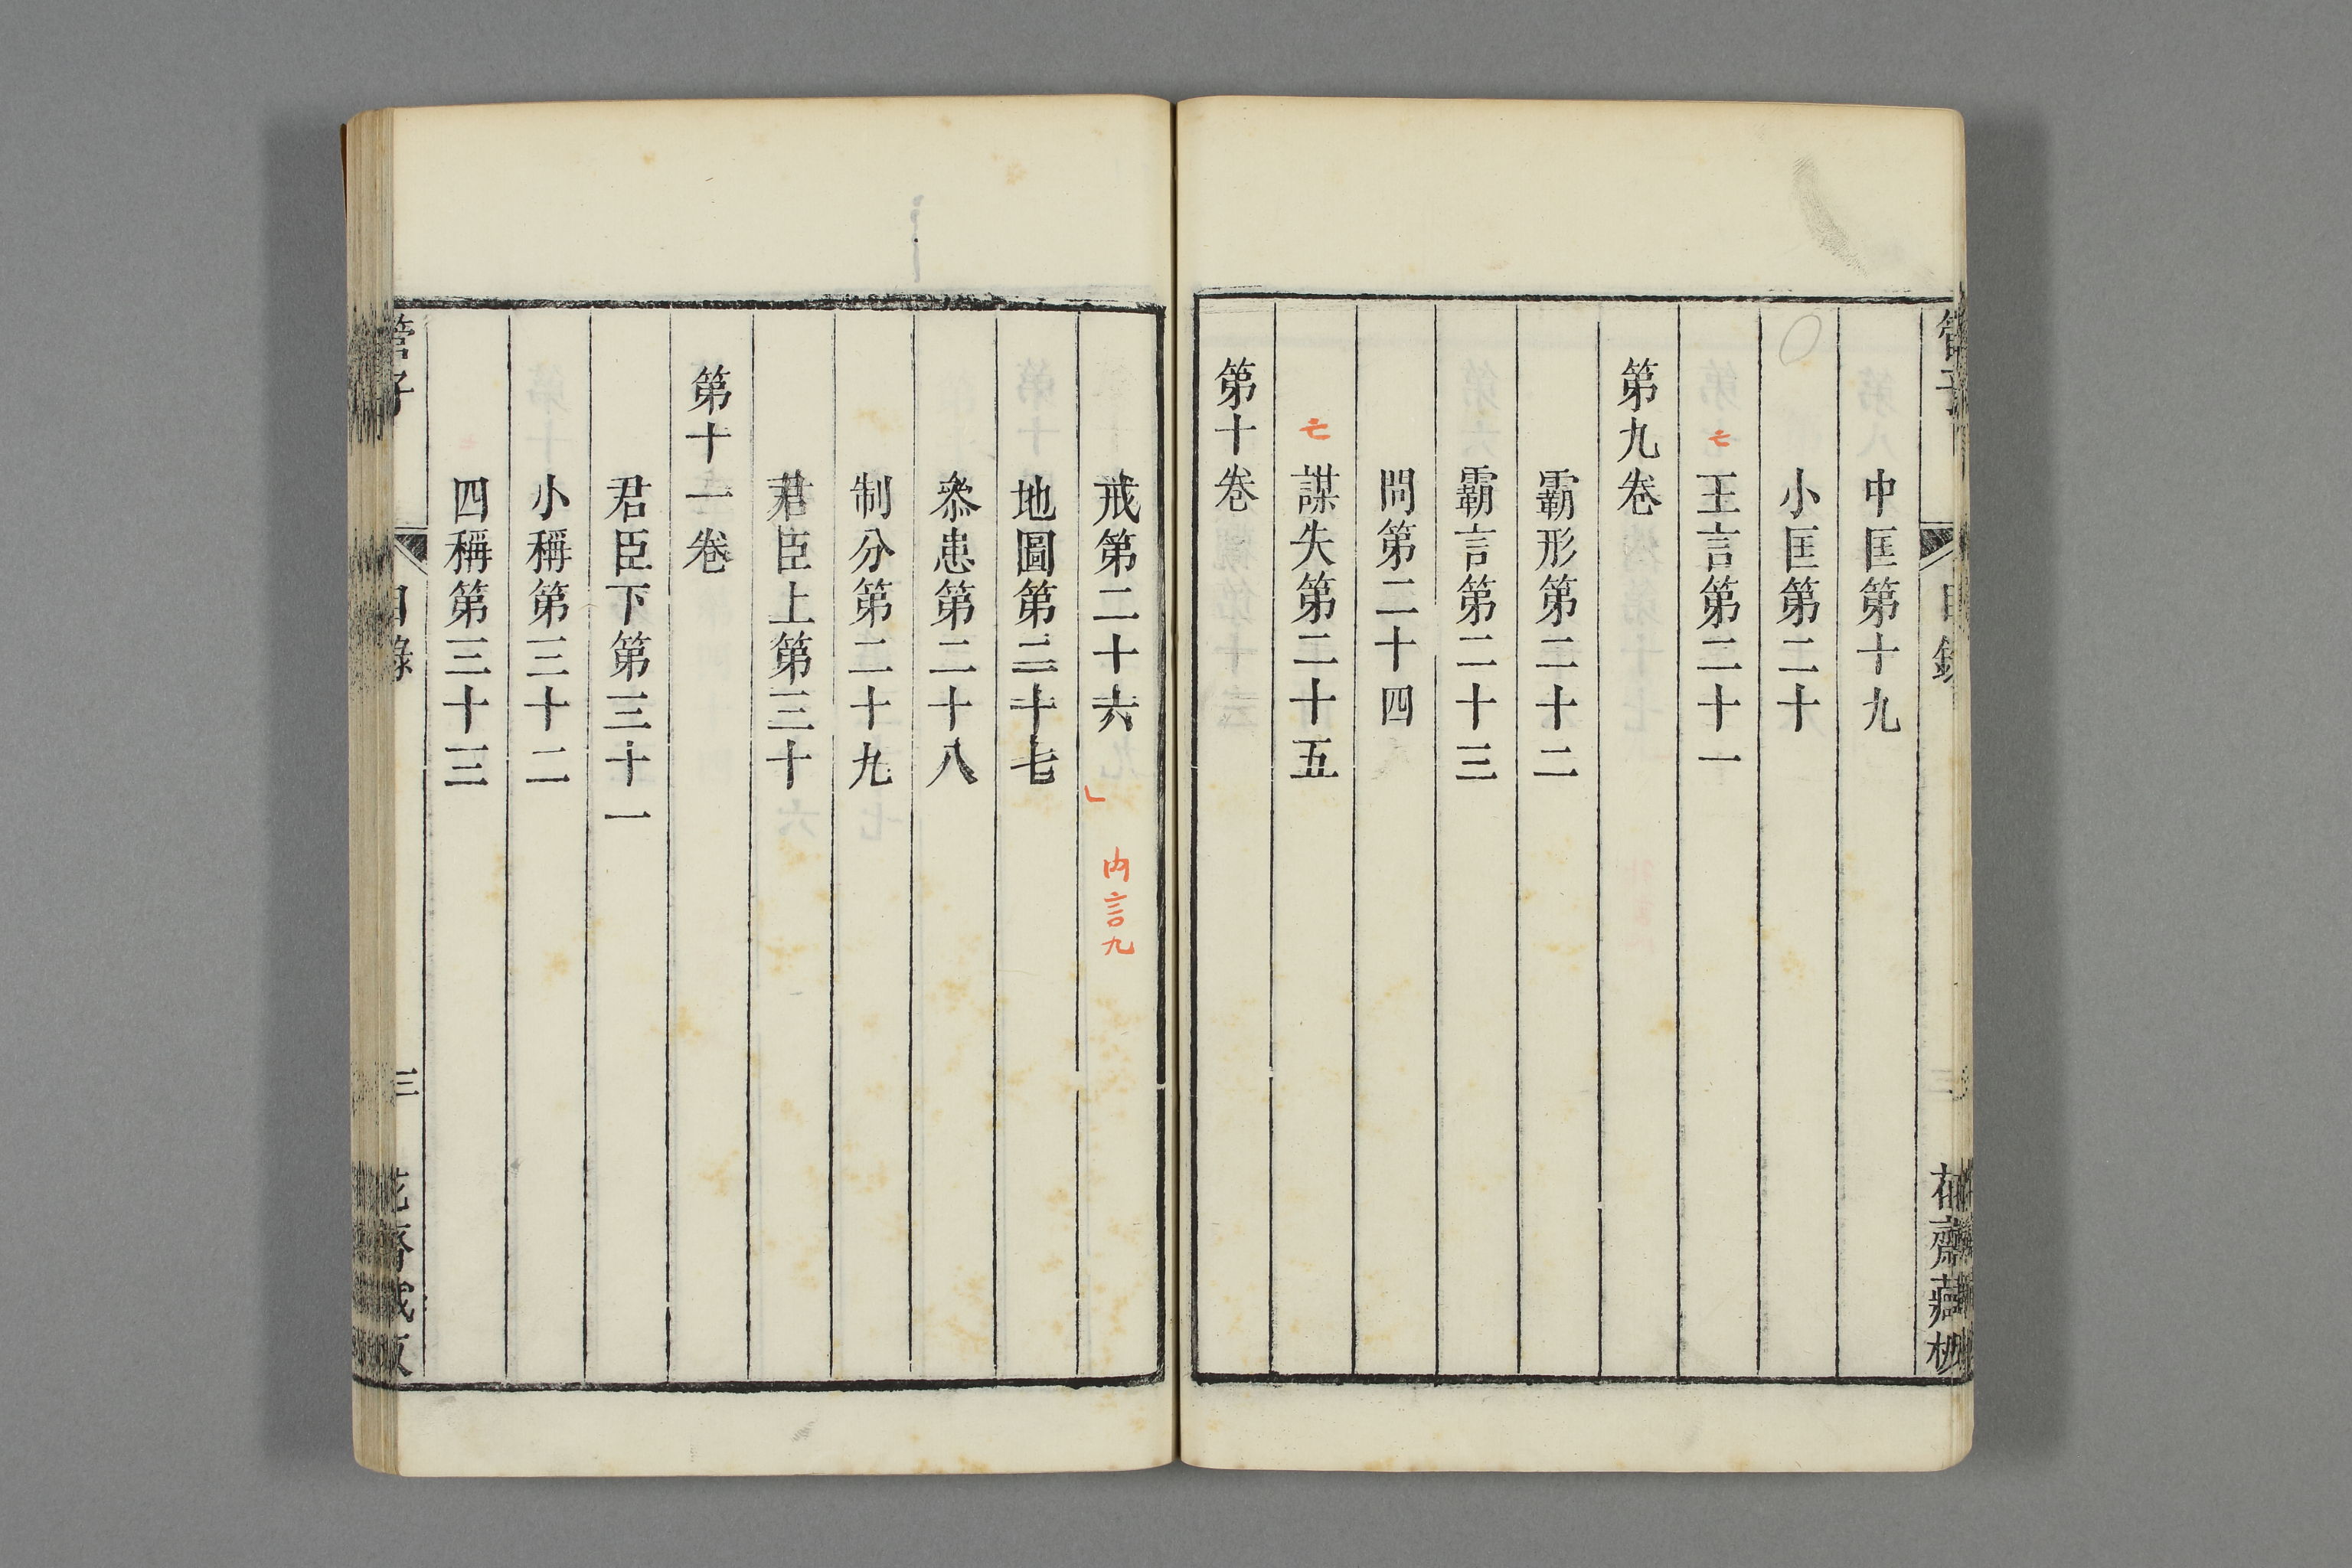 管子
目錄
三
花齋藏板
中匡第十九
小匡第二十
亡
王言第二十一
第九卷
霸形第二十二
霸言第二十三
問第二十四
亡
謀失第二十五
第十卷
戒第二十六
內言九
地圖第二十七
叅患第二十八
制分第二十九
君臣上第三十
第十一卷
君臣下第三十一
小稱第三十二
四稱第三十三
管子
目錄
三
花齋藏板